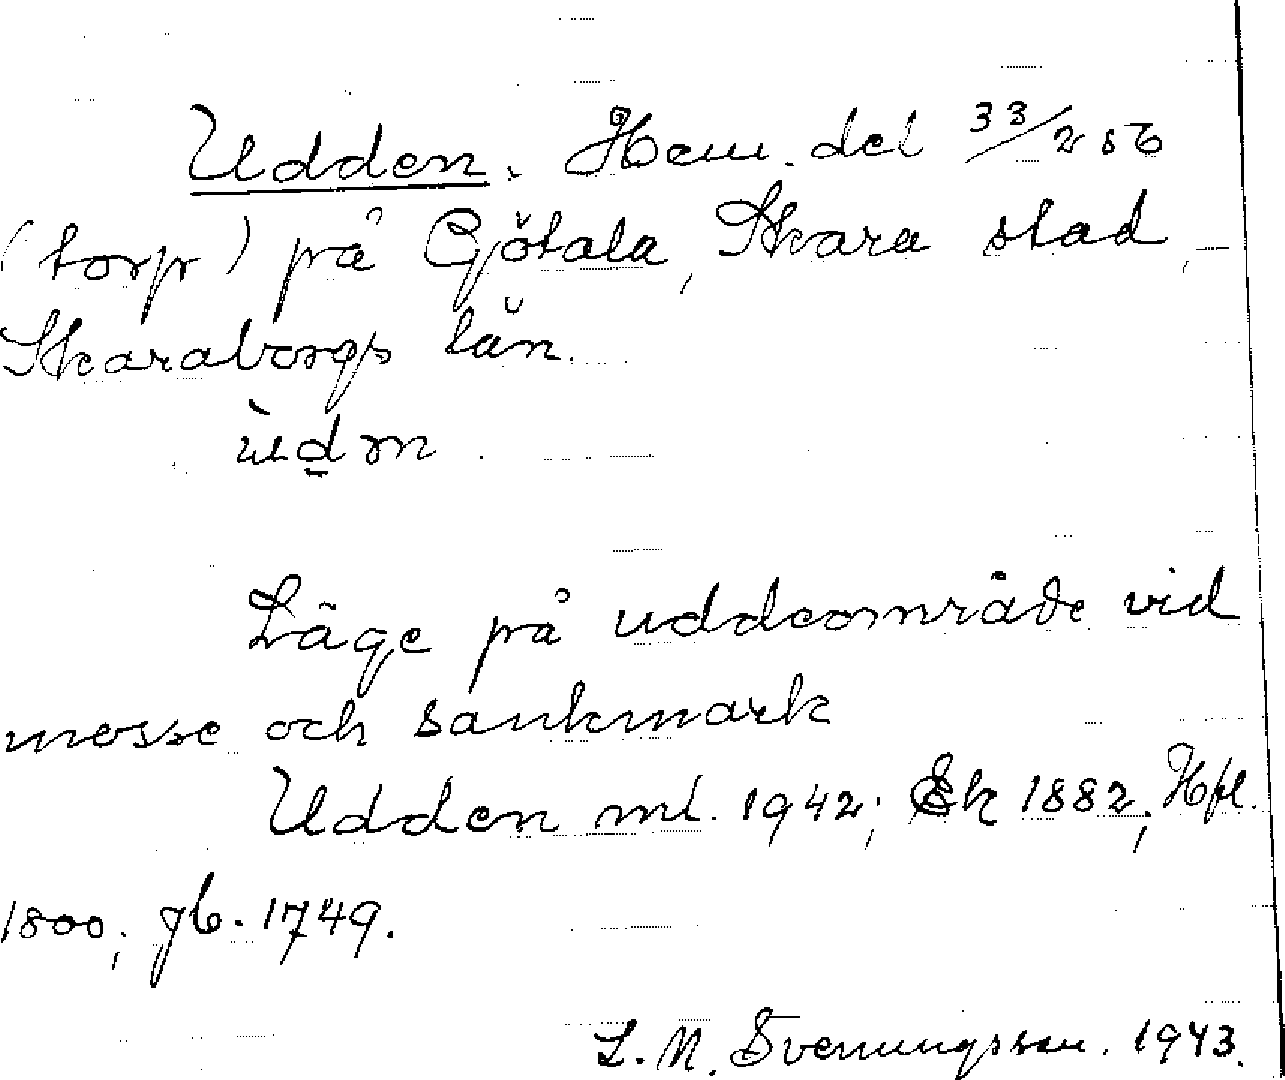 Udden. Hem. del 33/256
(torp) på Götala, Skara stad,
Skaraborgs län.
Läge på uddeområde vid
mosse och sankmark
Udden ml. 1942; Ek 1882; Hfl.
1800; jb. 1749.
L. N. Svenungsson. 1943.